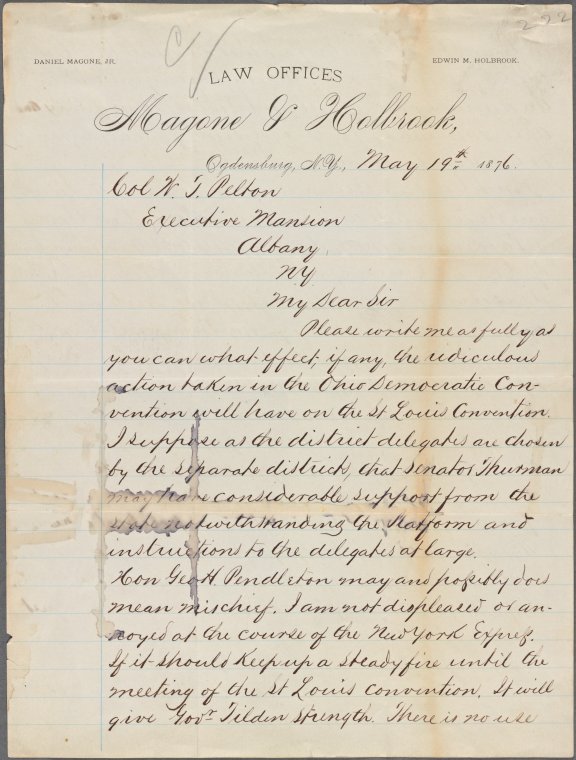 222
DANIEL MAGONE, JR.
EDWIN M. HOLBROOK.
LAW OFFICES
Magone & Holbrook,
Ogdensburg, N.Y., May 19th 1876.
Col W. T. Pelton
Executive Mansion
Albany,
NY
My Dear Sir
Please write me as fully as
you can what effect, if any, the ridiculous
action taken in the Ohio Democratic Con-
vention will have on the St Louis Convention.
I suppose as the district delegates are chosen
by the separate districts, that senator Thurman
may have considerable support from the
state notwithstanding the platform and
instructions to the delegates at large.
Hon Geo H. Pendleton may and possibly does
mean mischief. I am not displeased or an-
noyed at the course of the New York Express.
If it should keep up a steady fire until the
meeting of the St Louis convention, It will
give Govr Tilden strength. There is no use